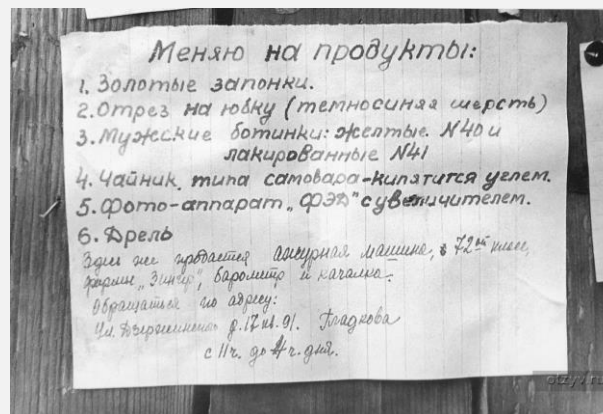 Меняю на продукты:
1. Золотые запонки.
2. Отрез на юбку (темносиняя шерсть)
3. Мужские ботинки: желтые N40 и
лакированные N41
4. Чайник, типа самовара-кипятится углем.
5. Фото-аппарат „ФЭД" с увеличителем.
6. Дрель
Здесь же продается ажурная машина, 72ой класс,
фирмы „Зингер", барометр и качалка.
Обращаться по адресу:
Ул. Дзержинского д. 17 кв. 91. Гладкова
с 11ч. до 4ч. дня.
otzyv.ru